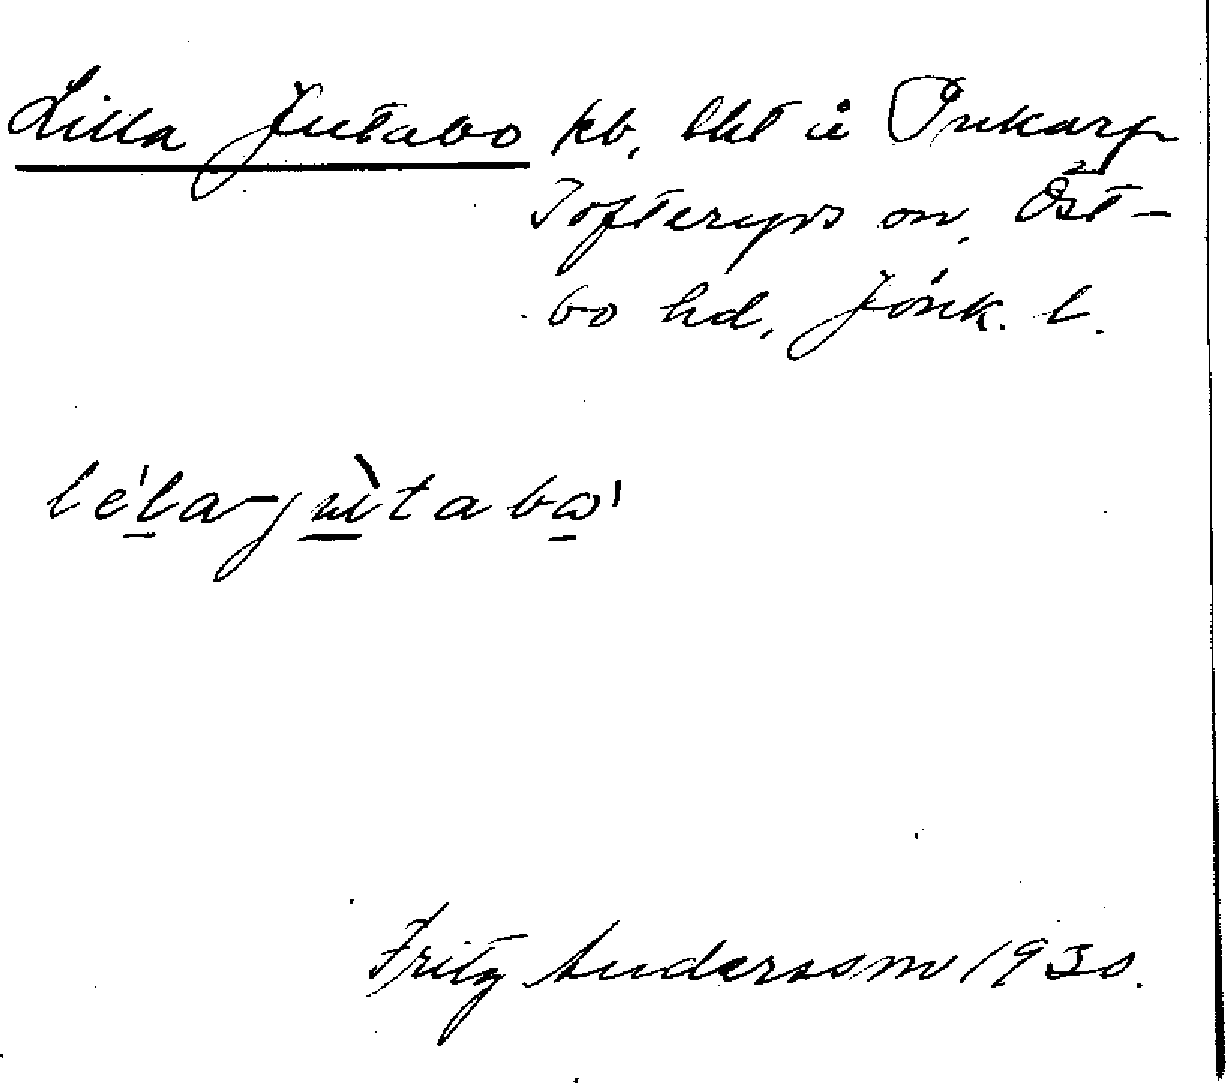 Lilla Jutabo kb, lht å Inkarp
Tofteryds sn, Öst-
bo hd, Jönk. l.
léla-jùtabo'
Fritz Andersson 1930.